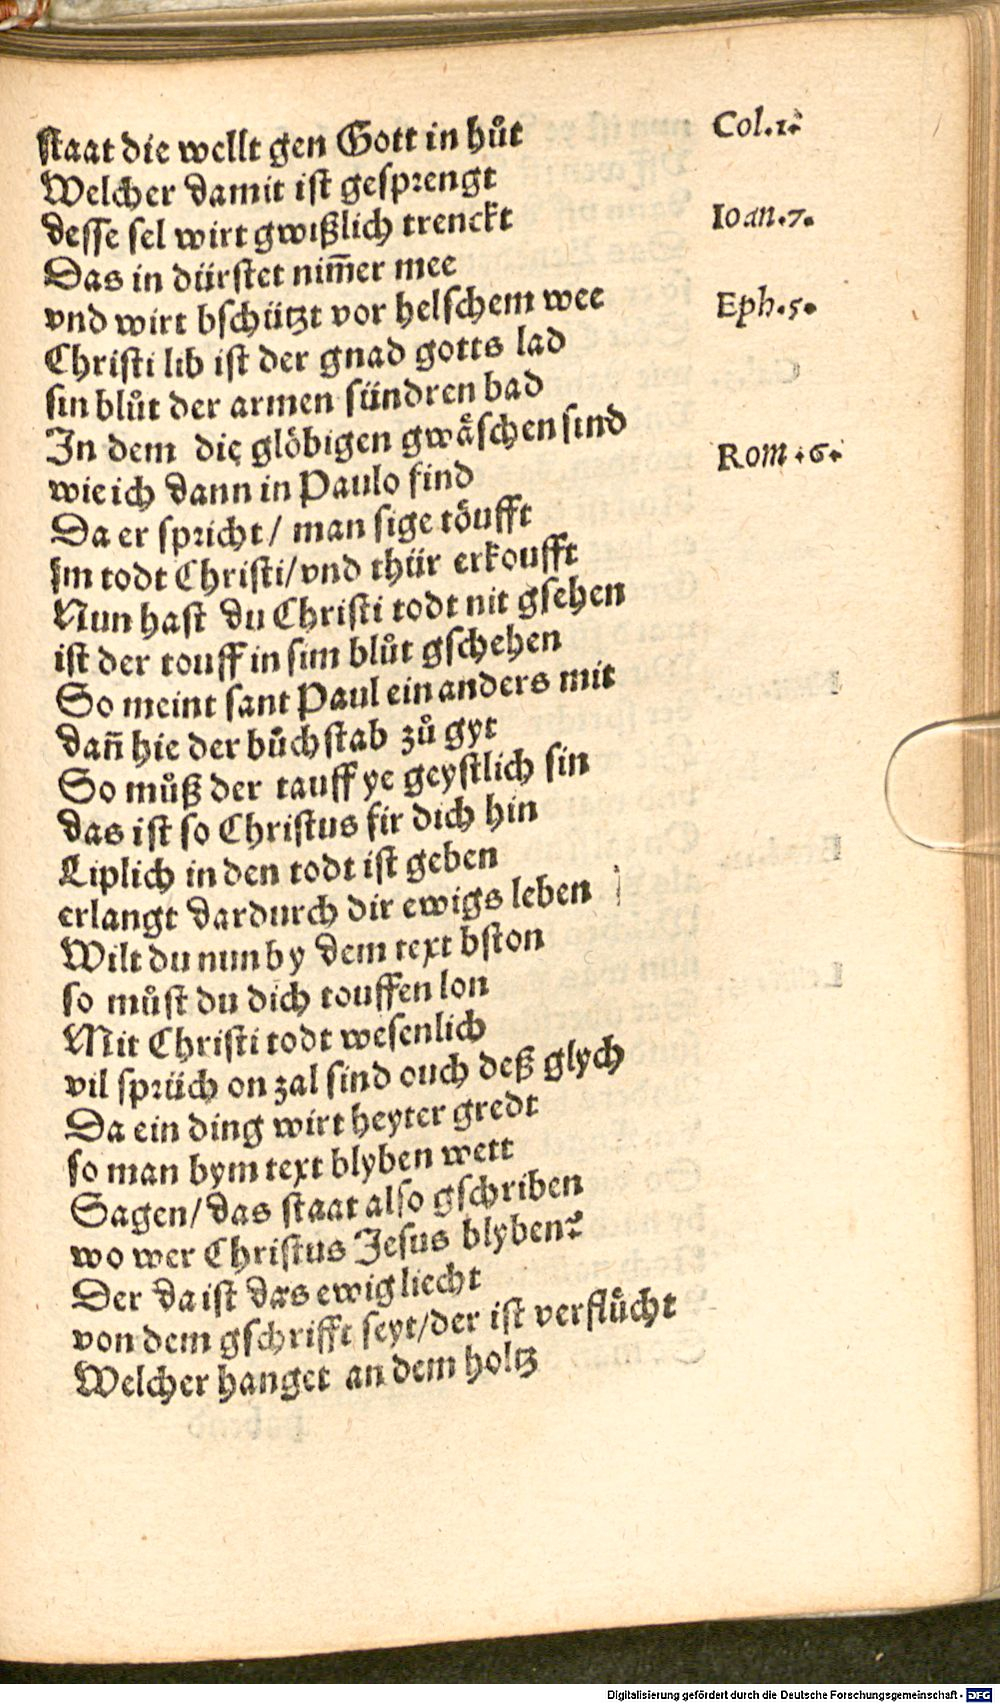 staat die wellt gen Gott in hůt
Col.1.
Welcher damit ist gesprengt
desse sel wirt gwißlich trenckt
Ioan.7.
Das in dürstet nim̃er mee
vnd wirt bschützt vor helschem wee
Eph.5.
Christi lib ist der gnad gotts lad
sin blůt der armen sündren bad
In dem die glöbigen gwäschen sind
wie ich dann in Paulo find
Rom.6.
Da er spricht/ man sige töufft
Im todt Christi/vnd thür erkoufft
Nun hast du Christi todt nit gsehen
ist der touff in sim blůt gschehen
So meint sant Paul ein anders mit
dañ hie der bůchstab zů gyt
So můß der tauff ye geystlich sin
das ist so Christus fir dich hin
Liplich in den todt ist geben
erlangt dardurch dir ewigs leben
Wilt du nun by dem text bston
so můst du dich touffen lon
Mit Christi todt wesenlich
vil sprüch on zal sind ouch deß glych
Da ein ding wirt heyter gredt
so man bym text blyben wett
Sagen/ das staat also gschriben
wo wer Christus Jesus blyben?
Der da ist das ewig liecht
von dem gschrifft seyt/der ist verflůcht
Welcher hanget an dem holtz
Digitalisierung gefördert durch die Deutsche Forschungsgemeinschaft - DFG